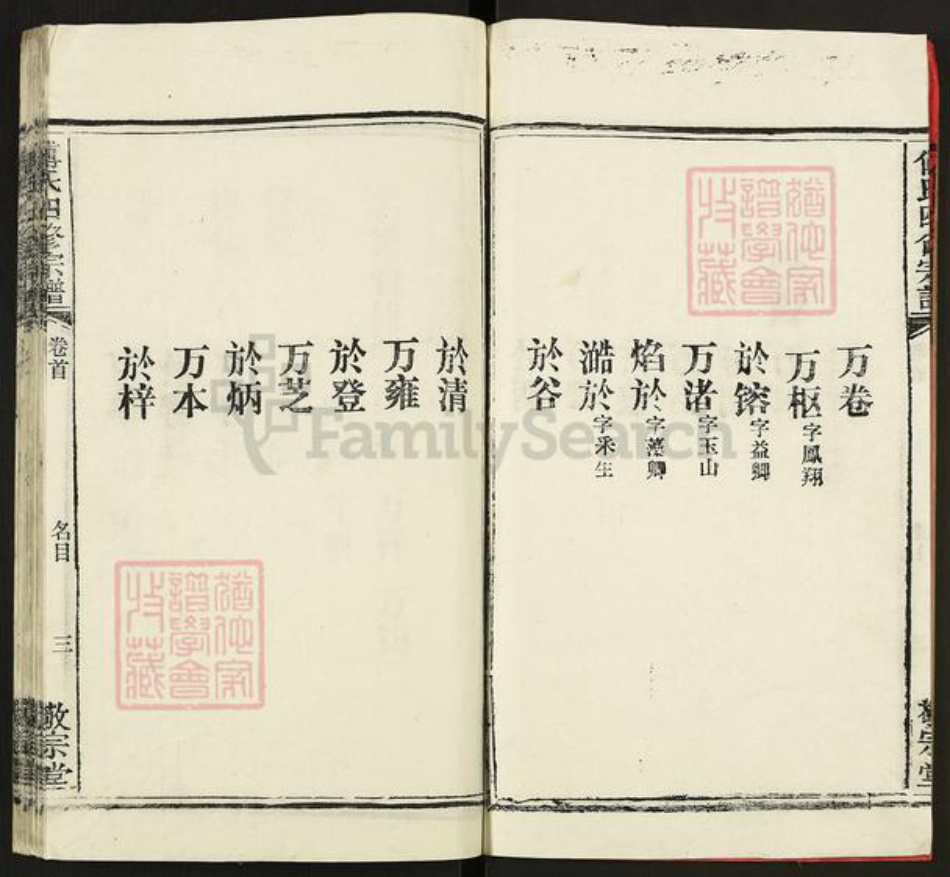 万卷
万枢字鳳翔
於镕字益卿
万渚字玉山
焰於字藻卿
澔於字釆生
於谷
於清
万雍
於登
万芝
於炳
万本
於梓
氏四修宗譜
卷首
名目
三
敬宗堂
猶他家
譜學會
收藏
猶他家
譜學會
收藏
FamilySearch